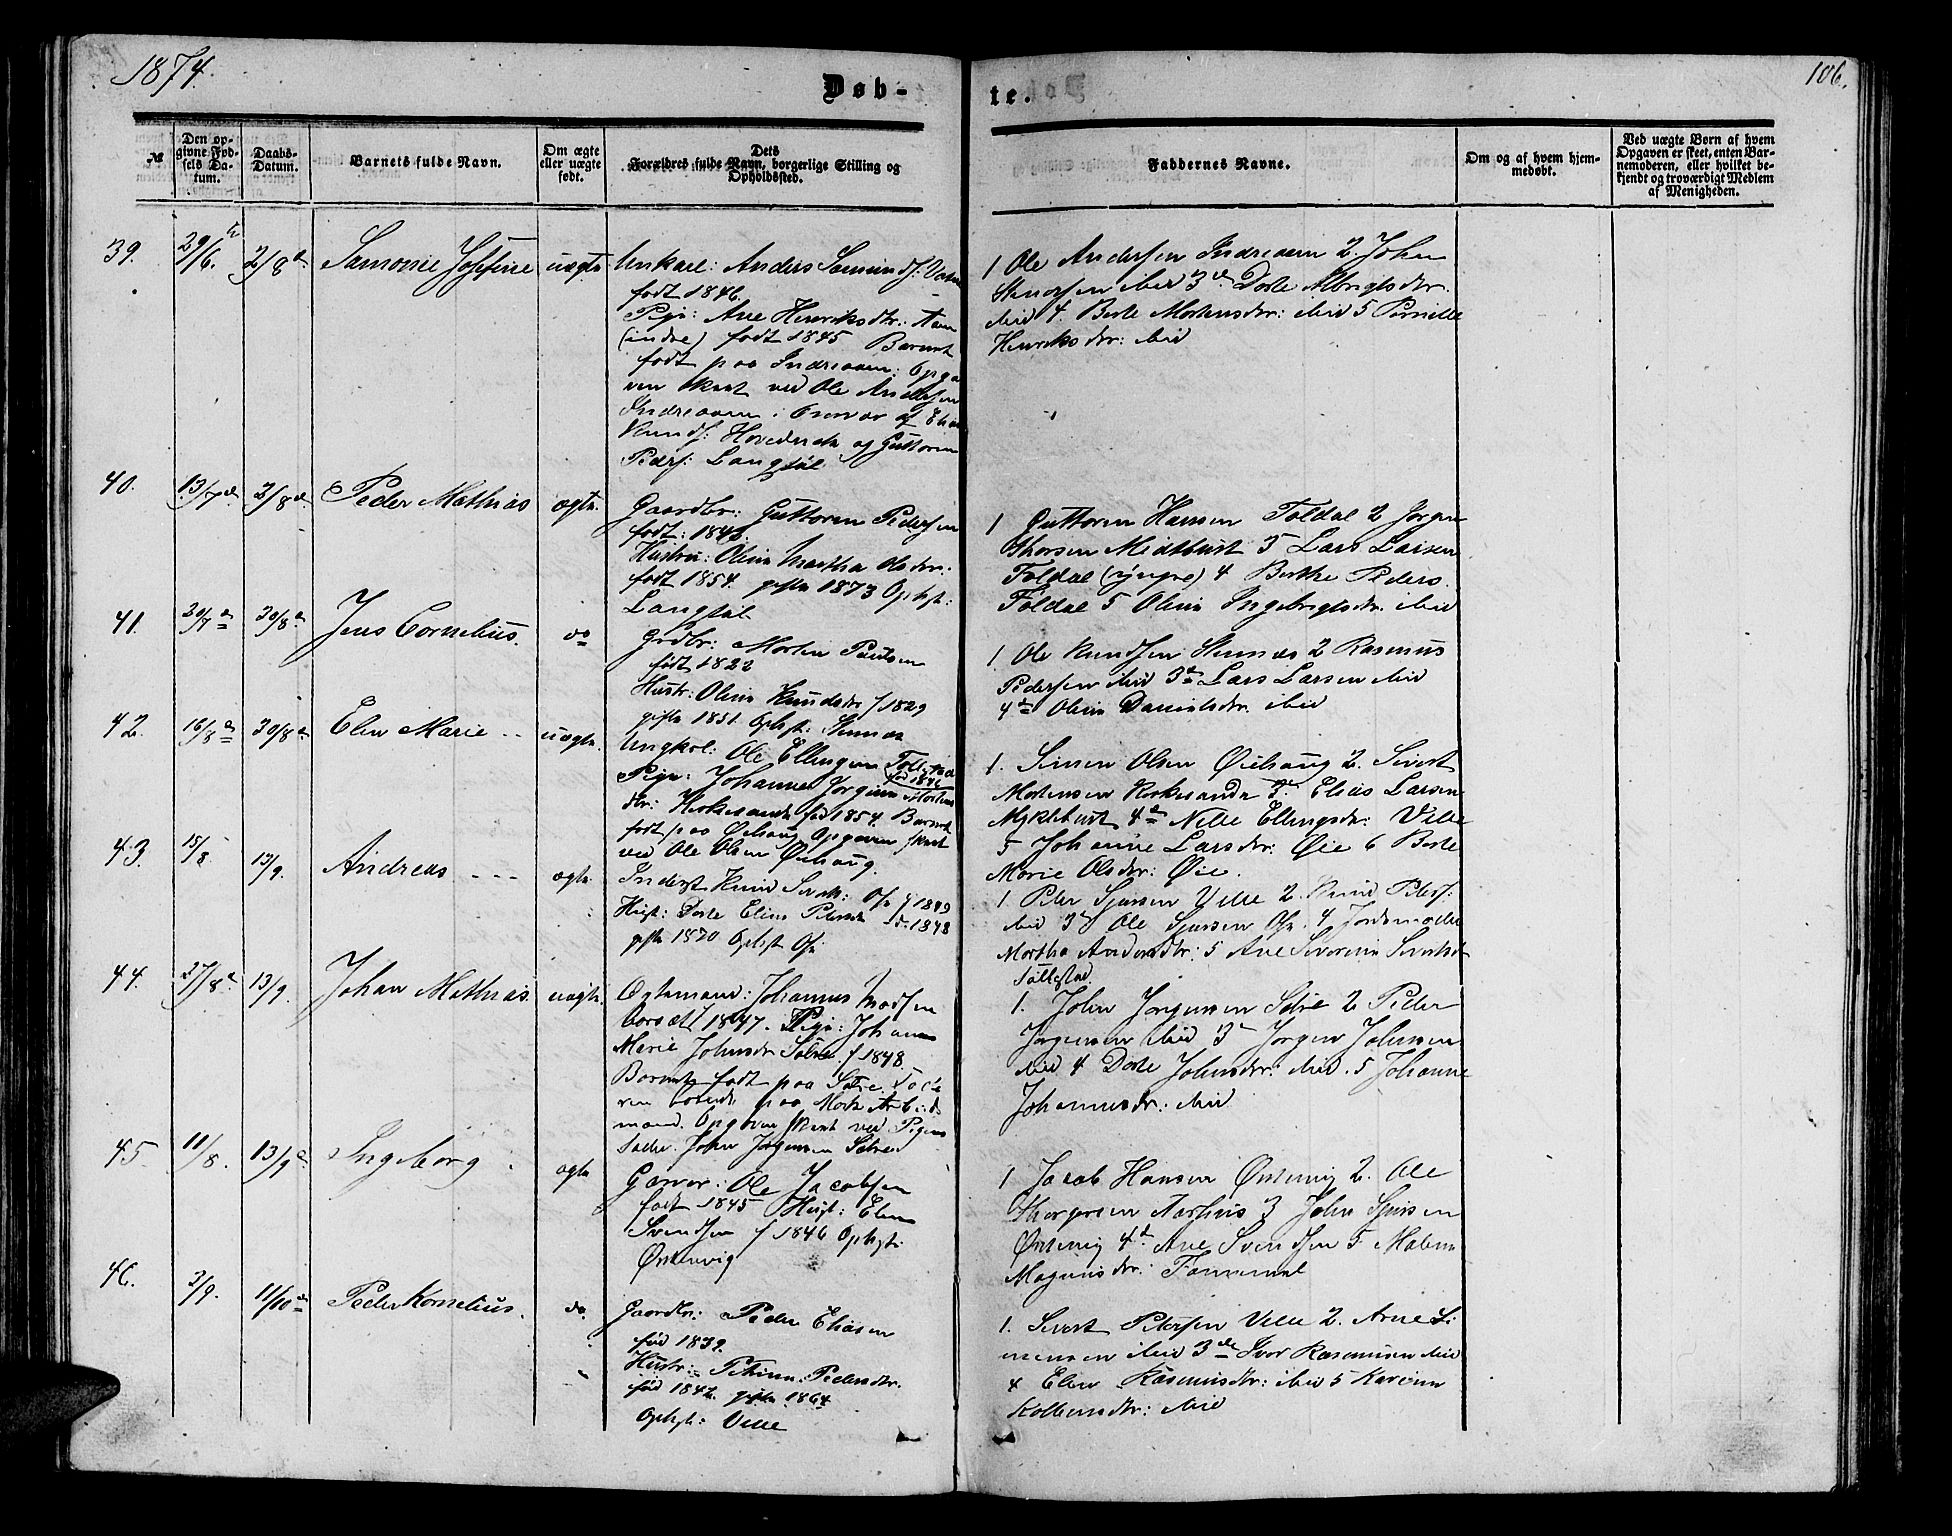 1874.
106.
Døb-
te.
№
Den opgivne Fødsels Datum.
Daabs-Datum.
Barnets fulde Navn.
Om ægte eller uægte født.
Dets Forældres fulde Navn, borgerlige Stilling og Opholdssted.
Faddernes Navne.
Om og af hvem hjemmedøbt.
Ved uægte Børn af hvem Opgaven er skeet, enten Barnemoderen, eller hvilket bekjendt og troværdigt Medlem af Menigheden.
39. 29/6. 2/8 Samonie Josefine uægte
Unkarl: Anders
født 1846.
Pige: Ane Henriksdtr:
(indre) født 1845 Barnet
født paa Indreaam: Opga
ven skeet ved Ole Andersen
Indreaam i af Elias
Knuds: og Guttorm
Peders: Langsæl
1 Ole Andersen Indreaam 2. John
ibid 3 Dorte Albrigtsdtr.
ibid 4. Berte Mortensdtr: ibid 5 Pernille
Henriksdtr: ibid
40. 13/7 2/8 Peder Mathias ægte.
Gaardbr: Guttorm Pedersen
født: 184
Hustru: Oline Martha Olsdtr:
født 1854. gifte 1873 Ophst:
Langsæl
1 Guttorm Hansen Foldal 2 Jørgen
Thorsen Midtbust 3 Lars Larsen
Foldal (yngre) 4 Berthe Peders.
Foldal 5 Oline Ingebrigtsdtr. ibid
41. 20/7 30/8 Jens Cornelius. do
Grdbr: Morten Paulsen
født 1822
Hustr: Oline Knudsdtr f 1829
gifte 1851. Ophst:
1 Ole Knudsen 2 Rasmus
Pedersen ibid 3 Lars Larsen ibid
4 Oline Danielsdtr. ibid
42. 16/8 30/8 Elen Marie -- uægte.
Ungkal: Ole Ellingsen
fød 1846
Pige: Johanne Jørgine Mortens
dtr: fød 1854. Barnet
født paa Øiehaug Opgaven skeet
ved Ole Olsen Øiehaug.
1. Simon Olsen Øiehaug 2. Sivert
Mortensen 3. Elias Larsen
Myklebust 4 Nille Ellingsdtr: Velle
5 Johanne Larsdtr: Øie 6 Berte
Marie Olsdtr: Øie.
43. 15/8. 13/9. Andreas --- ægte.
Inderst Knud f 1849
Hust: Dorte Eline Pedersdtr 1848
gifte 1870 Ophst
1. Peder Sjursen Velle 2. Knud Peders:
ibid 3 Ole Sjursen 4 Jordemoder
Martha Andersdtr: 5 Ane Severine
44. 27/8 13/9. Johan Mathias. uægte.
Egtemand: Johannes Madsen
f 1847. Pige: Johanne
Marie Johnsdtr Sætre f 1848.
Barnet født paa Sætre.
mand. Opgaven skeet ved Pigens
Fader. John Jørgensen Sætre
1. John Jørgensen Sætre 2 Peder
Jørgensen ibid 3 Jørgen Johnsen
ibid 4 Dorte Johnsdtr: ibid. 5 Johanne
Johannesdtr: ibid
45. 11/8. 13/9 Ingeborg. ægte
Garver: Ole Jacobsen
født 1845 Hust: Elen
Svendsen f 1846 Ophst:
Østenvig
1 Jacob Hansen Østenvig 2. Ole
Thorgersen Aarhus 3 John Sjursen
Østenvig 4 Ane Svendsen 5 Malene
Magnusdtr:
46. 3/9. 11/10 Peder Kornelius. do.
Gaardbr: Peder Eliasen
fød 1839.
Hustr: Petrine Pedersdtr.
fød 1842 gifte 1864
Ophst: Velle
1. Sivert Petersen Velle 2. Arne Si
monsen ibid 3 Ivor Rasmusen ibid
4 Elen Rasmusdtr: ibid 5 Karoline
Kolbensdtr: ibid